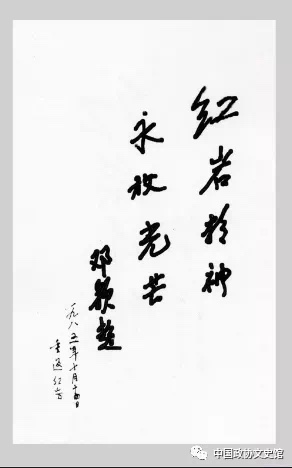 红岩精神
永放光芒
邓颖超
一九八五年十月十四日
重返红岩
中国政协文史馆